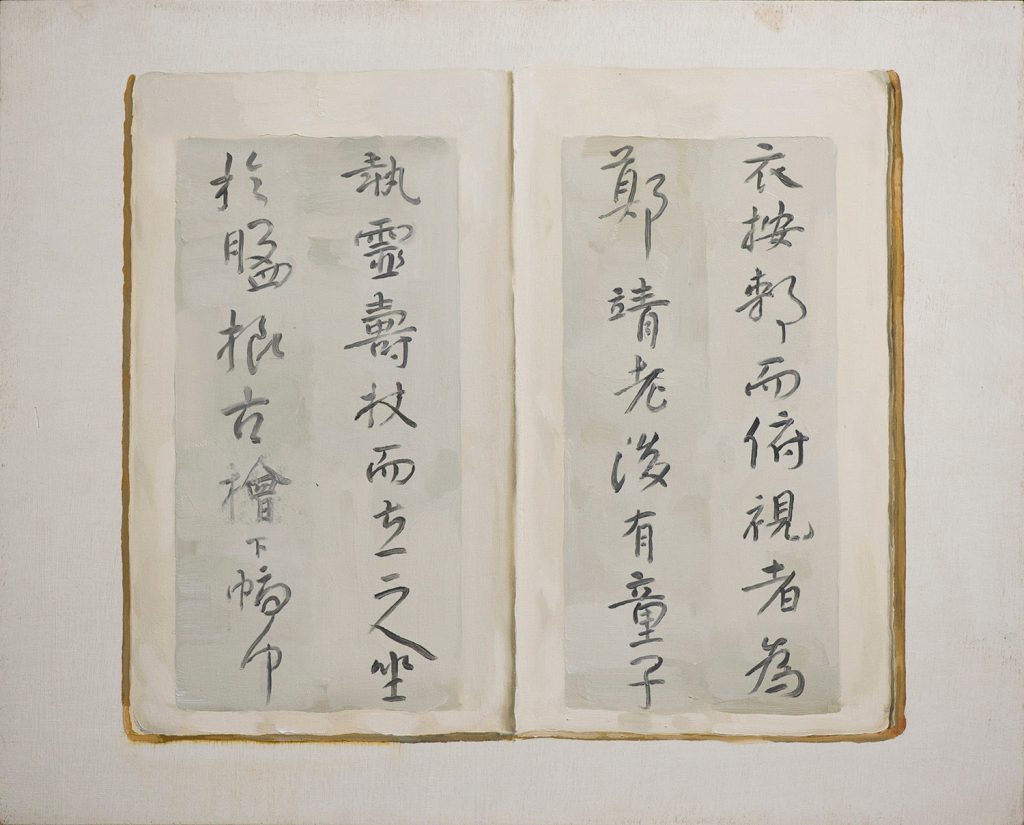 衣按䣛而俯視者為
鄭靖老後有童子
執靈壽杖而立二人坐
於盤根古檜下幅巾